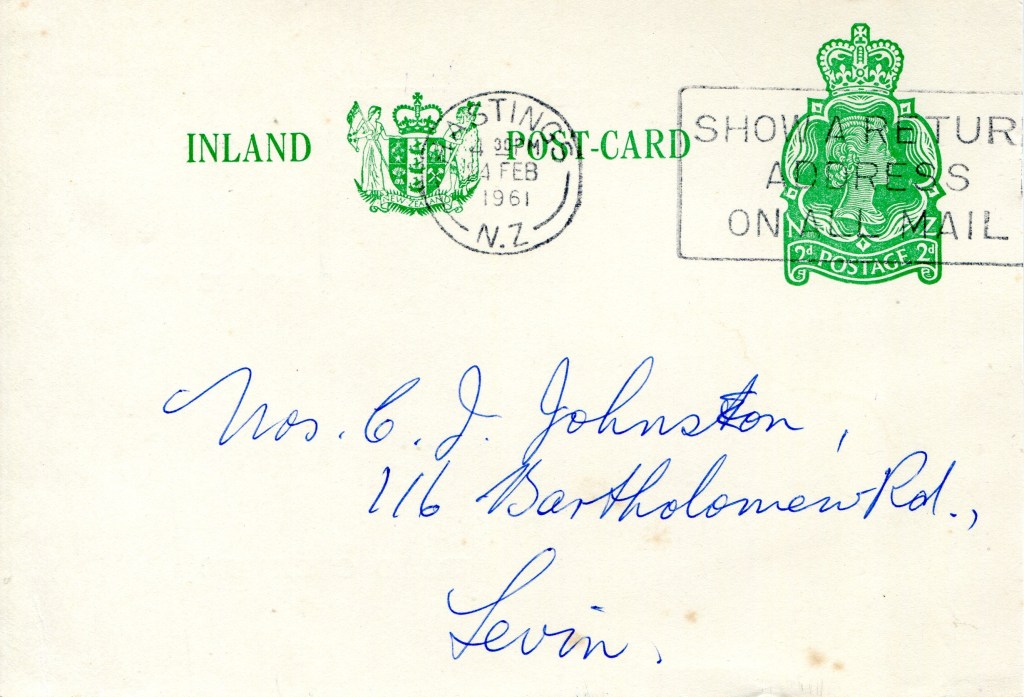 INLAND POST-CARD
NEW ZEALAND
HASTINGS
4 30 PM
FEB
1961
N.Z
SHOW A RETURN
ADDRESS
ON ALL MAIL
N Z
2d POSTAGE 2d
Mrs. C. J. Johnston,
116 Bartholomew Rd.,
Levin.